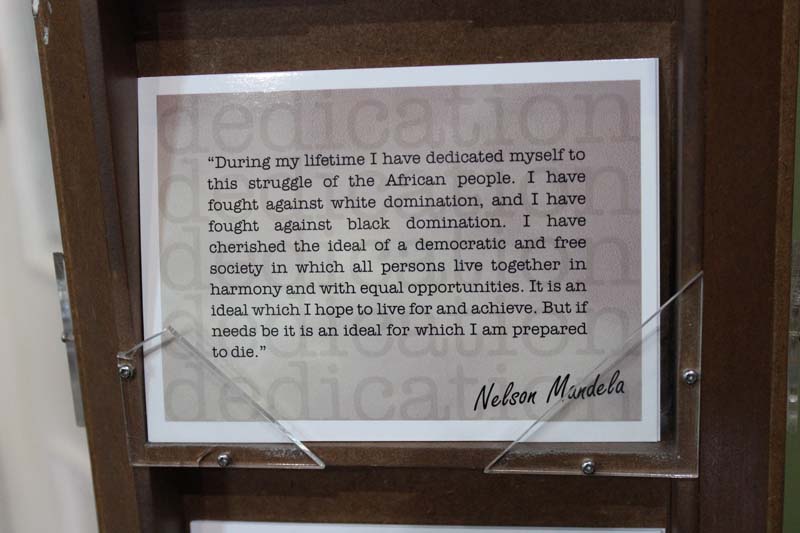 dedication
"During my lifetime I have dedicated myself to
this struggle of the African people. I have
fought against white domination, and I have
fought against black domination. I have
cherished the ideal of a democratic and free
society in which all persons live together in
harmony and with equal opportunities. It is an
ideal which I hope to live for and achieve. But if
needs be it is an ideal for which I am prepared
to die."
Nelson Mandela
dedication
dedication
dedication
dedication